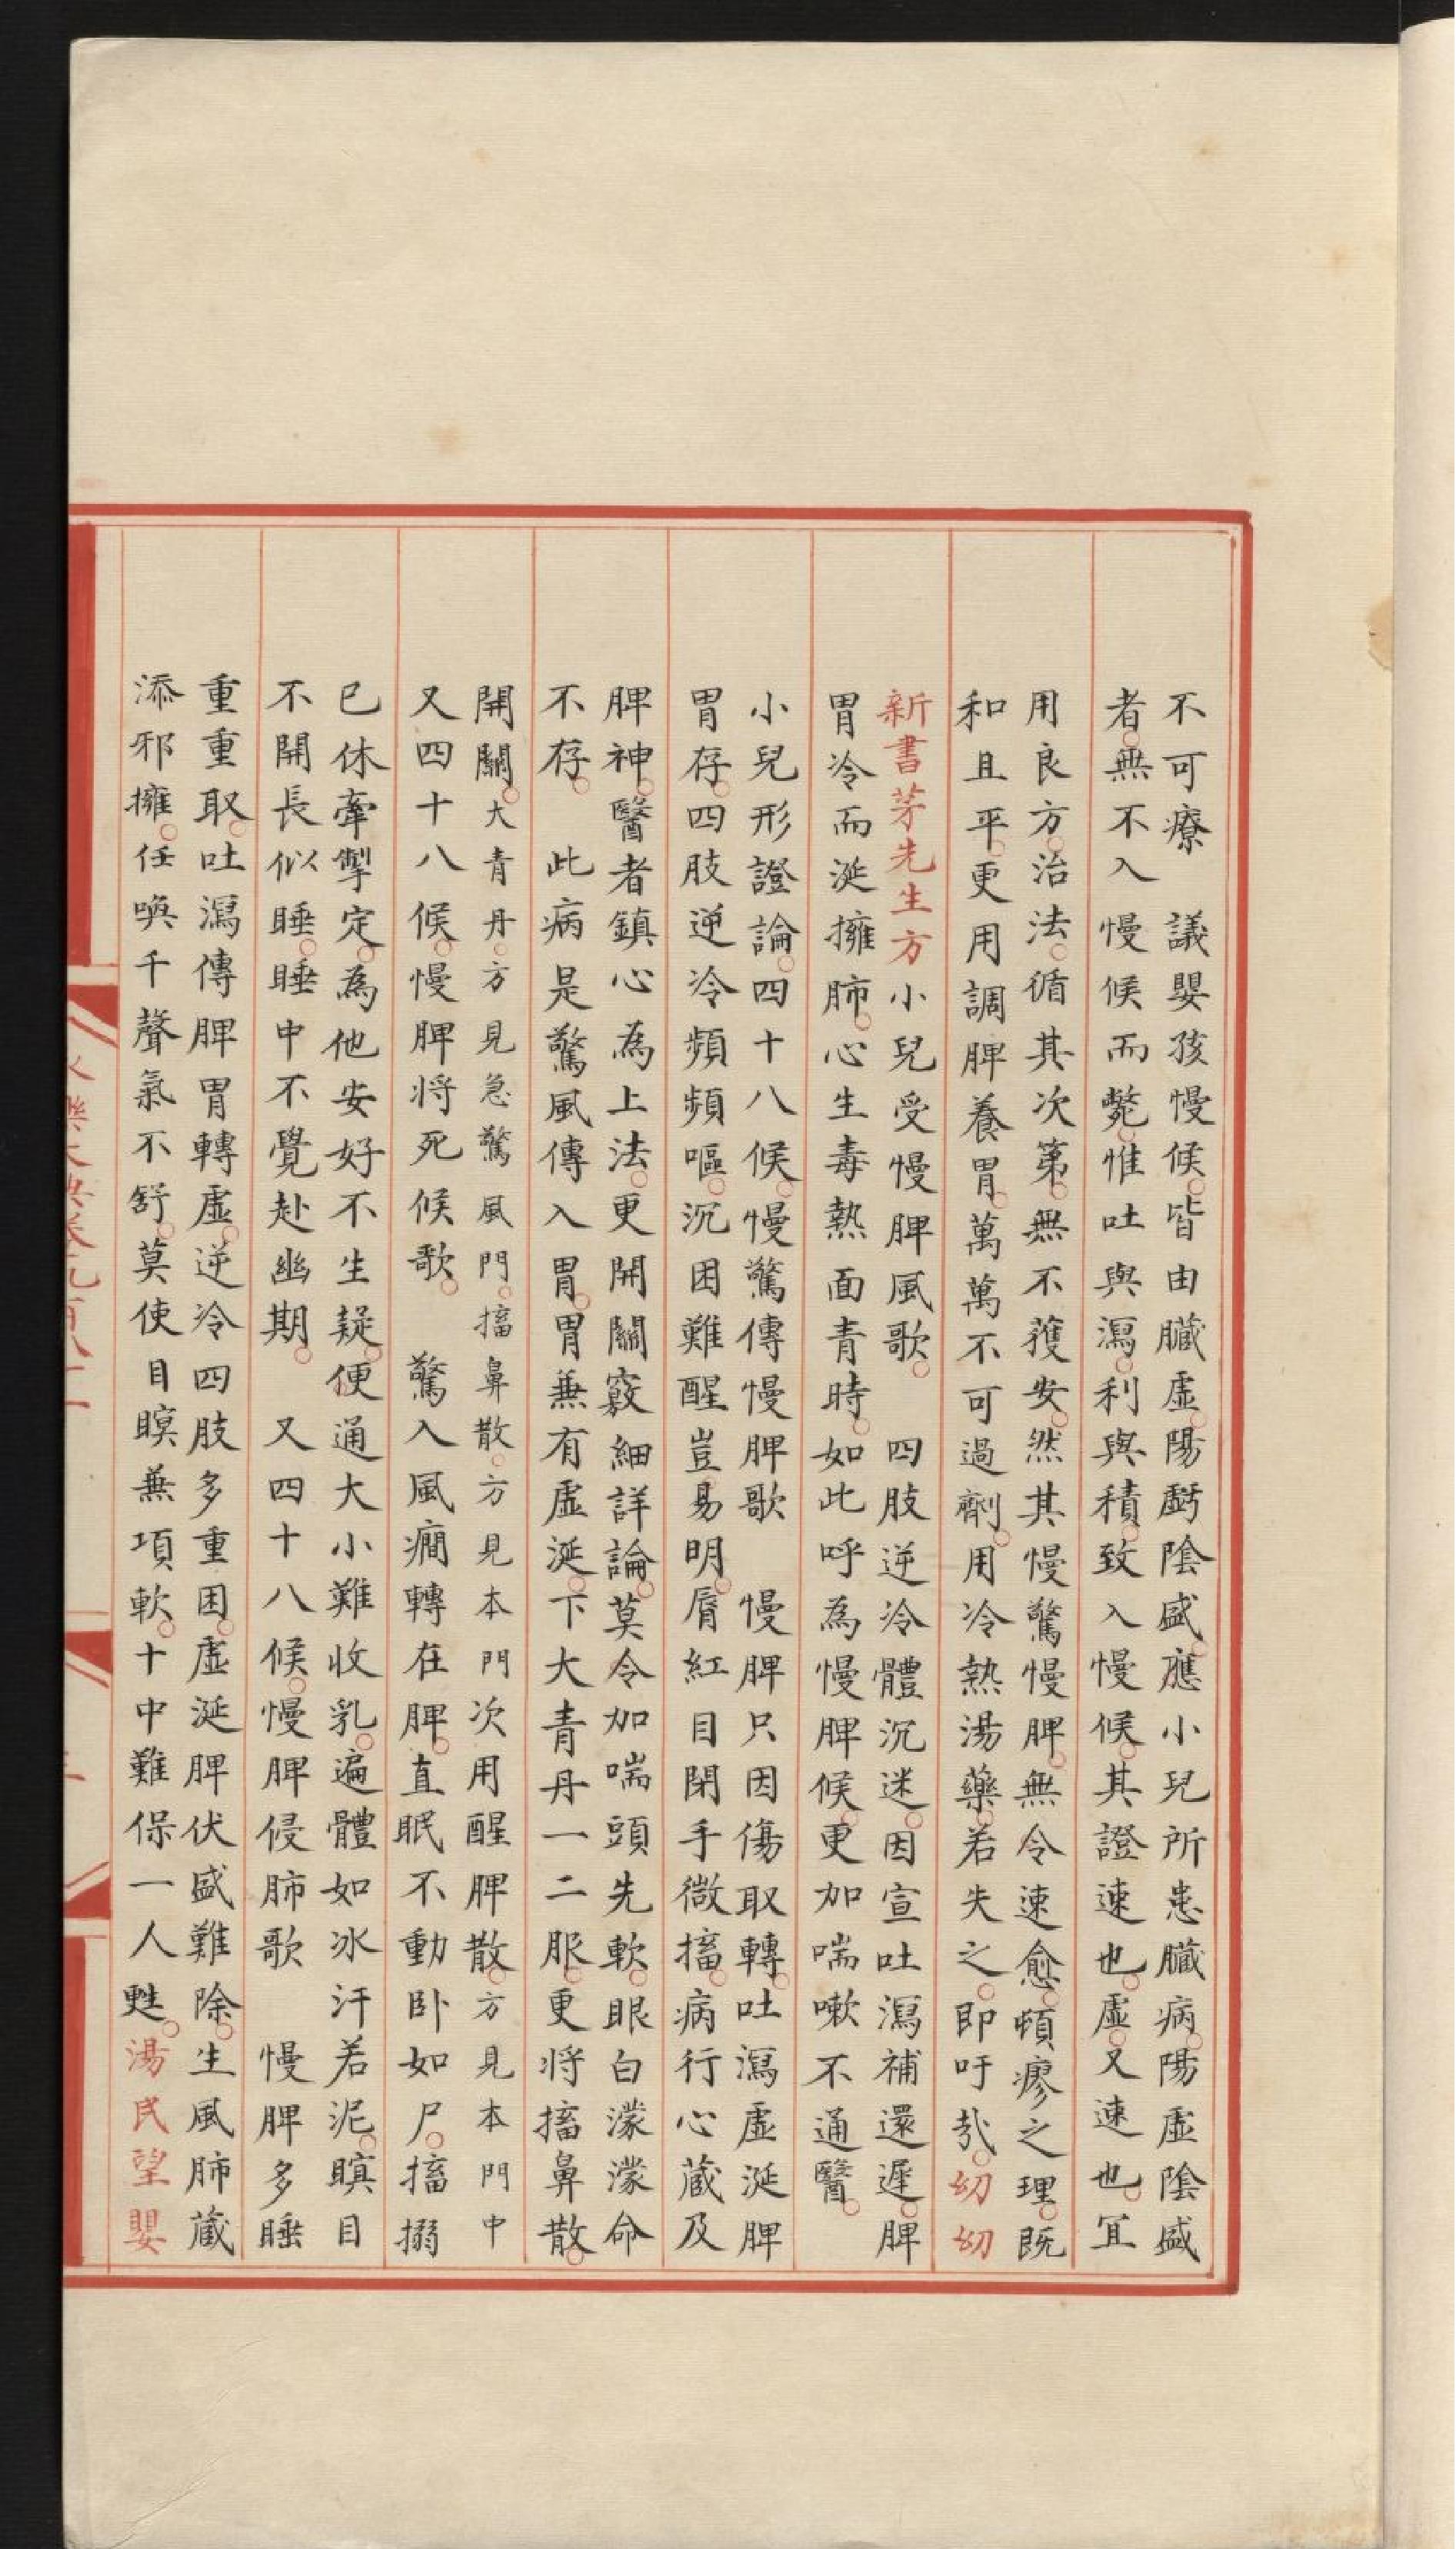 不可療　議嬰孩慢候。皆由臟虛。陽虧陰盛。應小兒所患臟病。陽虛陰盛
者。無不入慢候而斃。惟吐與瀉。利與積。致入慢候。其證速也。虛。又速也。冝
用良方。治法。循其次第。無不獲安。然其慢驚慢脾。無令速愈。頓瘳之理。既
和且平。更用調脾養胃。萬萬不可過劑。用冷熱湯藥。若失之。即吁㢤。幼幼
新書茅先生方小兒受慢脾風歌。　四肢逆冷體沉迷。因宣吐瀉補還遲。脾
胃冷而涎擁肺。心生毒熱面青時。如此呼為慢脾候。更加喘嗽不通醫。
小兒形證論。四十八候。慢驚傳慢脾歌　慢脾只因傷取轉。吐瀉虛涎脾
胃存。四肢逆冷頻頻嘔。沉困難醒豈易明。脣紅目閉手微搐。病行心藏及
脾神。醫者鎮心為上法。更開關竅細詳論。莫令加喘頭先軟。眼白濛濛命
不存。　此病是驚風傳入胃。胃無有虛涎。下大青丹一二服。更将搐鼻散。
開關。大青丹。方見急驚風門。搐鼻散。方見本門次用醒脾散。方見本門中
又四十八候。慢脾将死候歌。　驚入風癇轉在脾。直眠不動卧如尸。搐搦
已休牽掣定。為他安好不生疑。便通大小難收乳。遍體如冰汗若泥。瞑目
不開長似睡。睡中不覺赴幽期。　又四十八候。慢脾侵肺歌　慢脾多睡
重重取。吐瀉傳脾胃轉虛。逆冷四肢多重困。虛涎脾伏盛難除。生風肺藏
添邪擁。任喚千聲氣不舒。莫使目瞑無項軟。十中難保一人甦。湯民望嬰